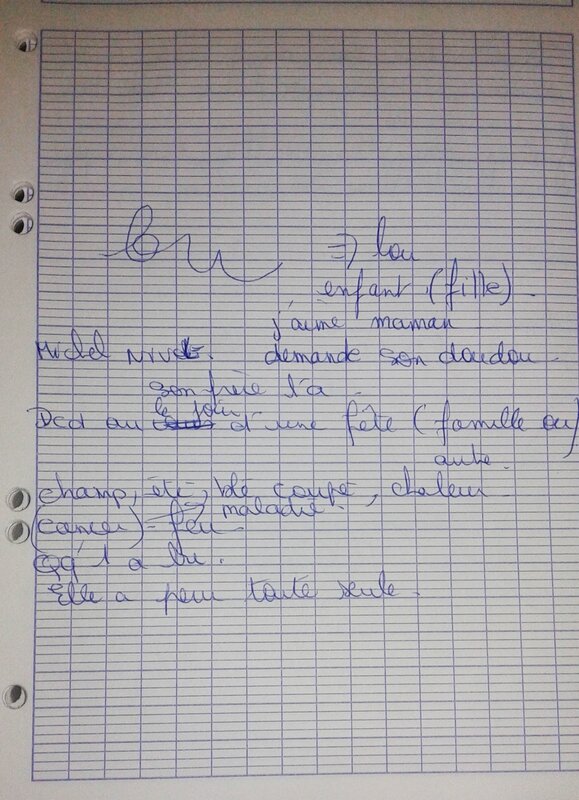 ⇒ lou
enfant (fille).
j'aime maman
demande son doudou.
son frère l'a.
le jour
Dcd au d'une fête (famille ou)
autre.
champ, été, blé coupé, chaleur
maladie.
(cancer) = feu.
Qq'1 a bu.
Elle a peur toute seule.